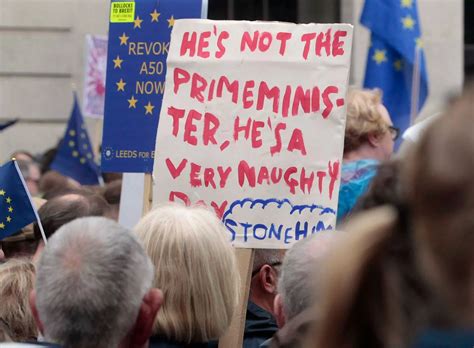 BOLLOCKS
TO BREXIT
REVOKE
A50
NOW
LEEDS FOR
HE'S NOT THE
PRIMEMINIS-
TER, HE'S A
VERY NAUGHTY
STONEH